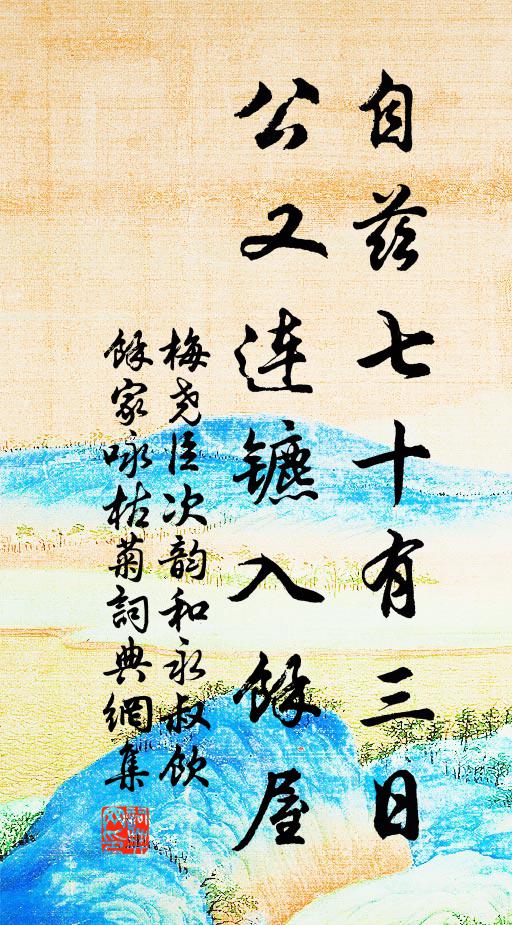 自兹七十有三日
公又连镳入馀屋
梅尧臣次韵和永叔饮
馀家咏枯菊词典网集